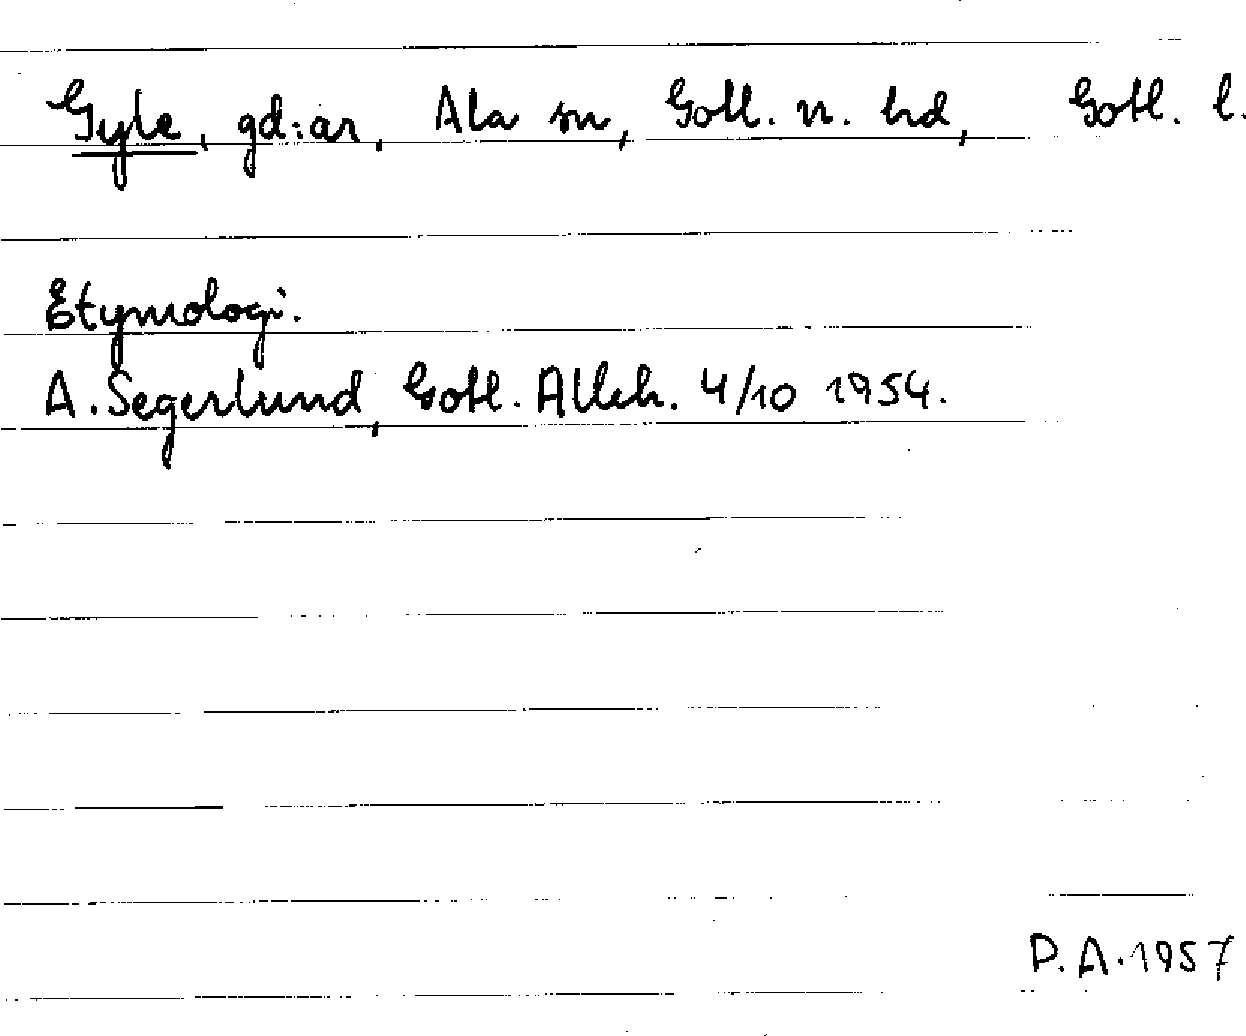 Gyle, gd:ar, Ala sn, Gotl. n. hd, Gotl. l.
Etymologi.
A. Segerlund, Gotl. Alleh. 4/10 1954.
P.A. 1957